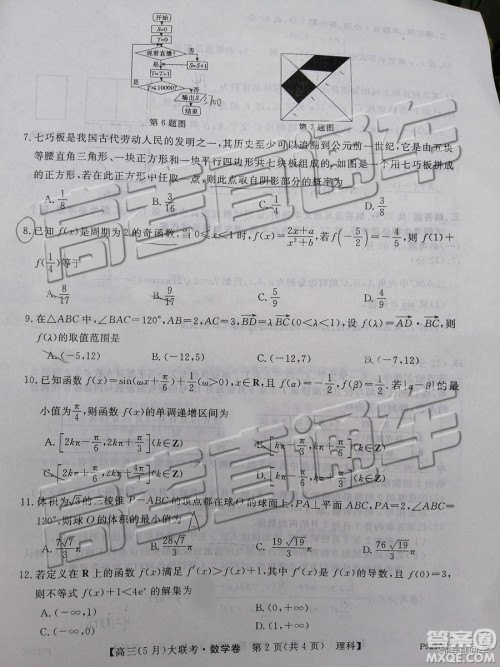 开始
S=0
T=0
收看直播?
否
是
S=S+1
T=T+1
是
否
输出S
结束
第6题图
第7题图
7. 七巧板是我国古代劳动人民的发明之一,其历史至少可以追溯到公元前一世纪,它是由五块
等腰直角三角形、一块正方形和一块平行四边形共七块板组成的.如图是一个用七巧板拼成
的正方形,若在此正方形中任取一点,则此点取自阴影部分的概率为
A. 1/8 B. 3/16 C. 1/4 D. 3/8
8. 已知 f(x)是周期为2的奇函数,当 0<x<1时, f(x)=(2x+a)/(x²+b),若f(-5/2)=-4/5,则 f(1)+
f(1/4)等于
A. 8/17 B. 9/17 C. 5/9 D. 4/9
9. 在△ABC中,∠BAC=120°,AB=2,AC=3,BD=λBC(0<λ<1),设 f(λ)=AD·BC,则
f(λ)的取值范围是
A. (-5,12) B. (-12,5) C. (-12,7) D. (-7,12)
10. 已知函数 f(x)=sin(ωx+π/6)+1/2(ω>0),x∈R,且f(α)=-1/2,f(β)=1/2.若|α-β|的最
小值为π/4,则函数 f(x)的单调递增区间为
11. 体积为√3的三棱锥 P-ABC的顶点都在球O的球面上,PA⊥平面ABC,PA=2,∠ABC=
120°,则球O的体积的最小值为
A. 7√7/3 π B. 28√7/3 π C. 19√19/3 π D. 76√19/3 π
12. 若定义在 R 上的函数 f(x)满足 f′(x)>f(x)+1,其中 f′(x)是 f(x)的导数,且 f(0)=3,则
不等式 f(x)+1<4eˣ的解集为
A. (-∞,0) B. (-∞,1) C. (0,+∞) D. (1,+∞)
【高三(5月)大联考·数学卷 第2页(共4页) 理科】
高考直通车
高考直通车